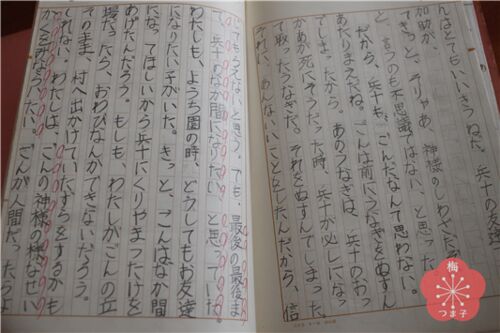 んはとてもいいきつねだ。兵十が
加助が、
「きっと、そりゃあ、神様のしわざだ
と、言うのも不思議ではない、と思った
だから、兵十も、ごんだなんて思わない。
あたりまえだね。ごんは前にうなぎをぬすん
でしまった。から。あのうなぎは、兵十のおっ
かあが死にそうだった時、兵十が必しになっ
て取ったうなぎだ。それをぬすんでしまった
それに、あんなにいいことをしたんだから、信
でもうえないと思う。でも、最後の最後ま
で、兵十のなか間になりたい、と思っていた。
わたしも、ようち園の時、どうしてもお友達
になりたい子がいた。きっと、ごんはなか間
になってほしいから兵十にくりやまったけを
あげたんだろう。もしも、わたしがごんの立
場だったら、おわびなんかできないだろう。
そのまま、村へ出かけていたずらをするかも
しれない。わたしは、ごんの神様の様なせい
かくを見ならいたい。ごんが人間だったらよ
梅
つま子